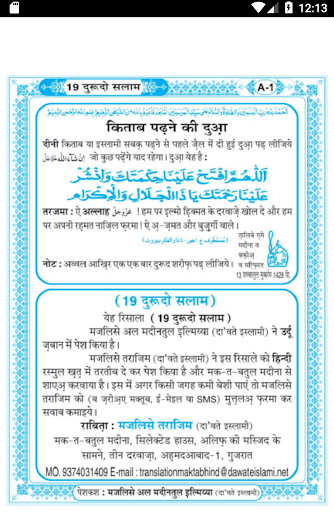 12:13
19 दुरूदो सलाम
A-1
किताब पढ़ने की दुआ़
दीनी किताब या इस्लामी सबक़ पढ़ने से पहले ज़ैल में दी हुई दुआ़ पढ़ लीजिये
जो कुछ पढ़ेंगे याद रहेगा। दुआ़ येह है :
اَللّٰهُمَّ افْتَحْ عَلَيْنَا حِكْمَتَكَ وَانْشُرْ
عَلَيْنَا رَحْمَتَكَ يَا ذَا الْجَلَالِ وَالْاِكْرَام
तरजमा : ऐ अल्लाह عَزَّوَجَلَّ ! हम पर इ़ल्मो हि़क्मत के दरवाज़े खोल दे और हम
पर अपनी रह़मत नाज़िल फ़रमा ! ऐ अ़-ज़मत और बुज़ुर्गी वाले।
त़ालिबे ग़मे
मदीना व
बक़ीअ़
व मग़्फ़िरत
13 शव्वालुल मुकर्रम 1428 हि.
नोट : अव्वल आख़िर एक एक बार दुरूद शरीफ़ पढ़ लीजिये।
(19 दुरूदो सलाम)
येह रिसाला (19 दुरूदो सलाम)
मजलिसे अल मदीनतुल इ़ल्मिय्या (दा'वते इस्लामी) ने उर्दू
ज़बान में पेश किया है।
मजलिसे तराजिम (दा'वते इस्लामी) ने इस रिसाले को हिन्दी
रस्मुल ख़त़ में तरतीब दे कर पेश किया है और मक-त-बतुल मदीना से
शाएअ़ करवाया है। इस में अगर किसी जगह कमी बेशी पाएं तो मजलिसे
तराजिम को (ब ज़रीअ़ए मक्तूब, ई-मेइल या SMS) मुत़्त़लअ़ फ़रमा कर
सवाब कमाइये।
राबित़ा : मजलिसे तराजिम (दा'वते इस्लामी)
मक-त-बतुल मदीना, सिलेक्टेड हाउस, अलिफ़ की मस्जिद के
सामने, तीन दरवाज़ा, अह़मदआबाद-1, गुजरात
MO. 9374031409 E-mail : translationmaktabhind@dawateislami.net
पेशकश : मजलिसे अल मदीनतुल इ़ल्मिय्या (दा'वते इस्लामी)